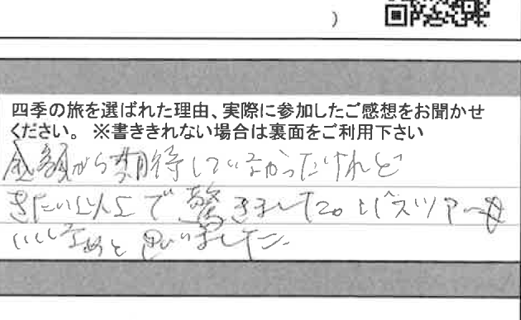 )
四季の旅を選ばれた理由、実際に参加したご感想をお聞かせ
ください。 ※書ききれない場合は裏面をご利用下さい
金額から期待していなかったけれど
きたい以上で驚きました。バスツアーも
いいなあと思いました。